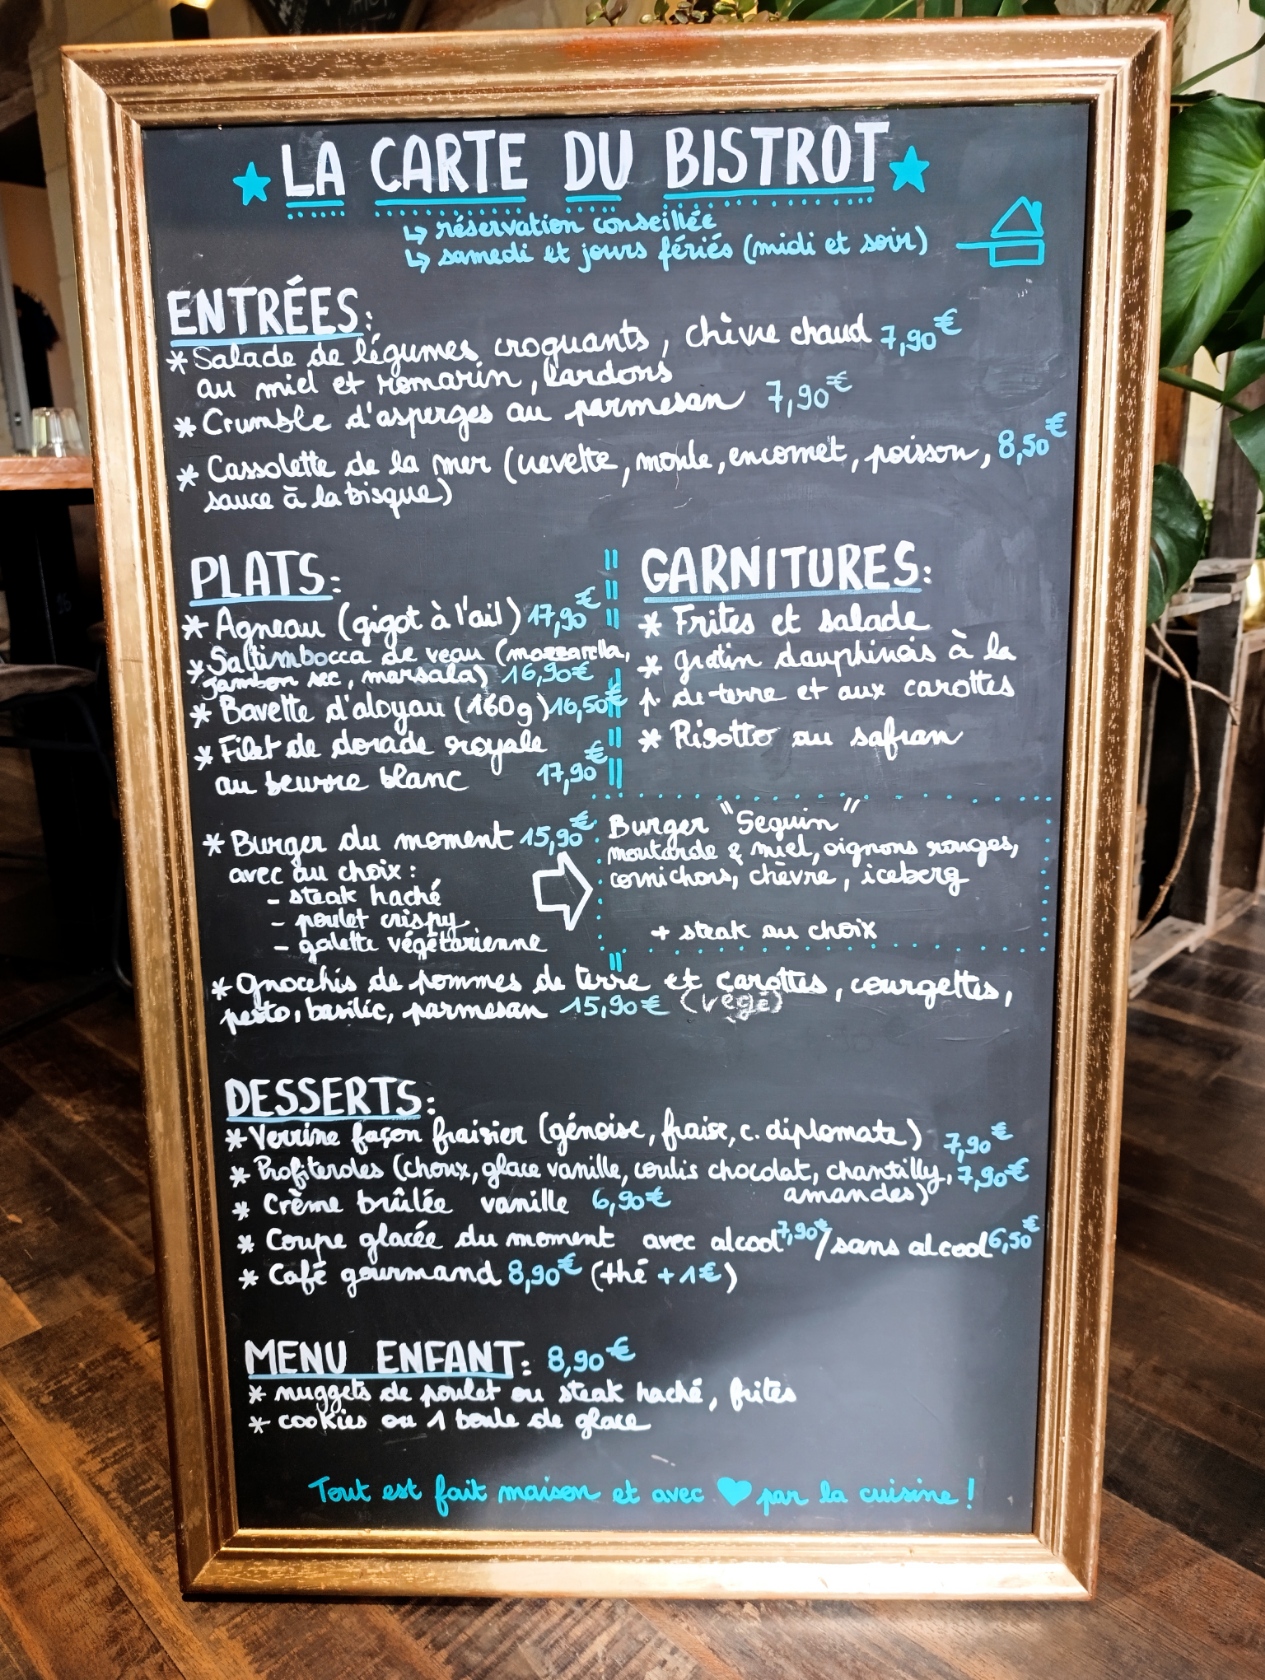 LA CARTE DU BISTROT
↳ réservation conseillée
↳ samedi et jours fériés (midi et soir)
ENTRÉES:
* Salade de légumes croquants, chèvre chaud 7,90€
au miel et romarin, lardons
* Crumble d'asperges au parmesan 7,90€
* Cassolette de la mer (crevette, moule, encornet, poisson, 8,50€
sauce à la bisque)
PLATS:
* Agneau (gigot à l'ail) 17,90€
* Saltimbocca de veau (mozzarella,
jambon sec, marsala) 16,90€
* Bavette d'aloyau (160g) 16,50€
* Filet de dorade royale
au beurre blanc 17,90€
GARNITURES:
* Frites et salade
* gratin dauphinois à la
p. de terre et aux carottes
* Risotto au safran
* Burger du moment 15,90€
avec au choix:
- steak haché
- poulet crispy
- galette végétarienne
Burger "Seguin"
moutarde & miel, oignons rouges,
cornichons, chèvre, iceberg
+ steak au choix
* Gnocchis de pommes de terre et carottes, courgettes,
pesto, basilic, parmesan 15,90€ (végé)
DESSERTS:
* Verrine façon fraisier (génoise, fraise, c. diplomate) 7,90€
* Profiteroles (choux, glace vanille, coulis chocolat, chantilly, 7,90€
amandes)
* Crème brûlée vanille 6,90€
* Coupe glacée du moment avec alcool 7,90€/sans alcool 6,50€
* Café gourmand 8,90€ (thé +1€)
MENU ENFANT: 8,90€
* nuggets de poulet ou steak haché, frites
* cookies ou 1 boule de glace
Tout est fait maison et avec ♥ par la cuisine!